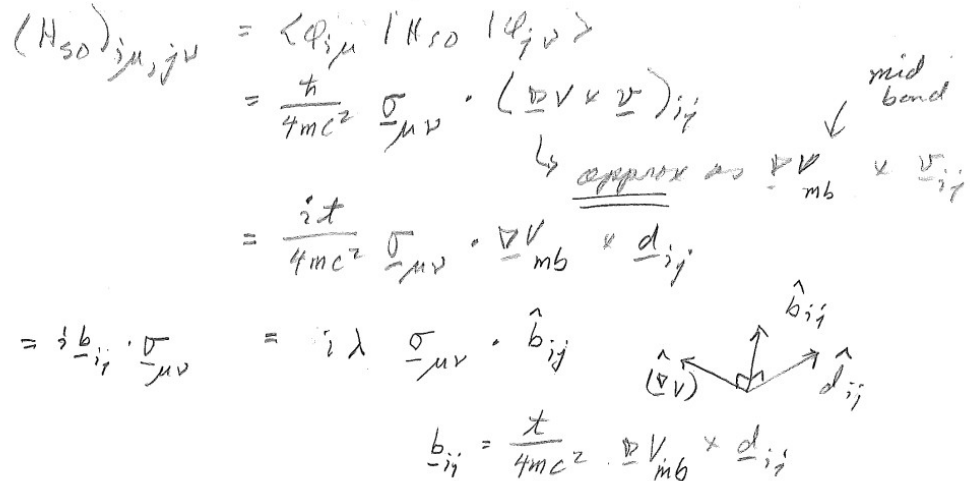 (H_SO)_{iμ,jν} = <φ_{iμ} | H_SO | φ_{jν}>
= ħ/4mc² σ_{μν} · (∇V × v)_{ij}
mid bond
↳ approx as ∇V_{mb} × v_{ij}
= it/4mc² σ_{μν} · ∇V_{mb} × d_{ij}
= i b_{ij} · σ_{μν} = iλ σ_{μν} · b̂_{ij}
b̂_{ij}
(∇̂V) d̂_{ij}
b_{ij} = t/4mc² ∇V_{mb} × d_{ij}